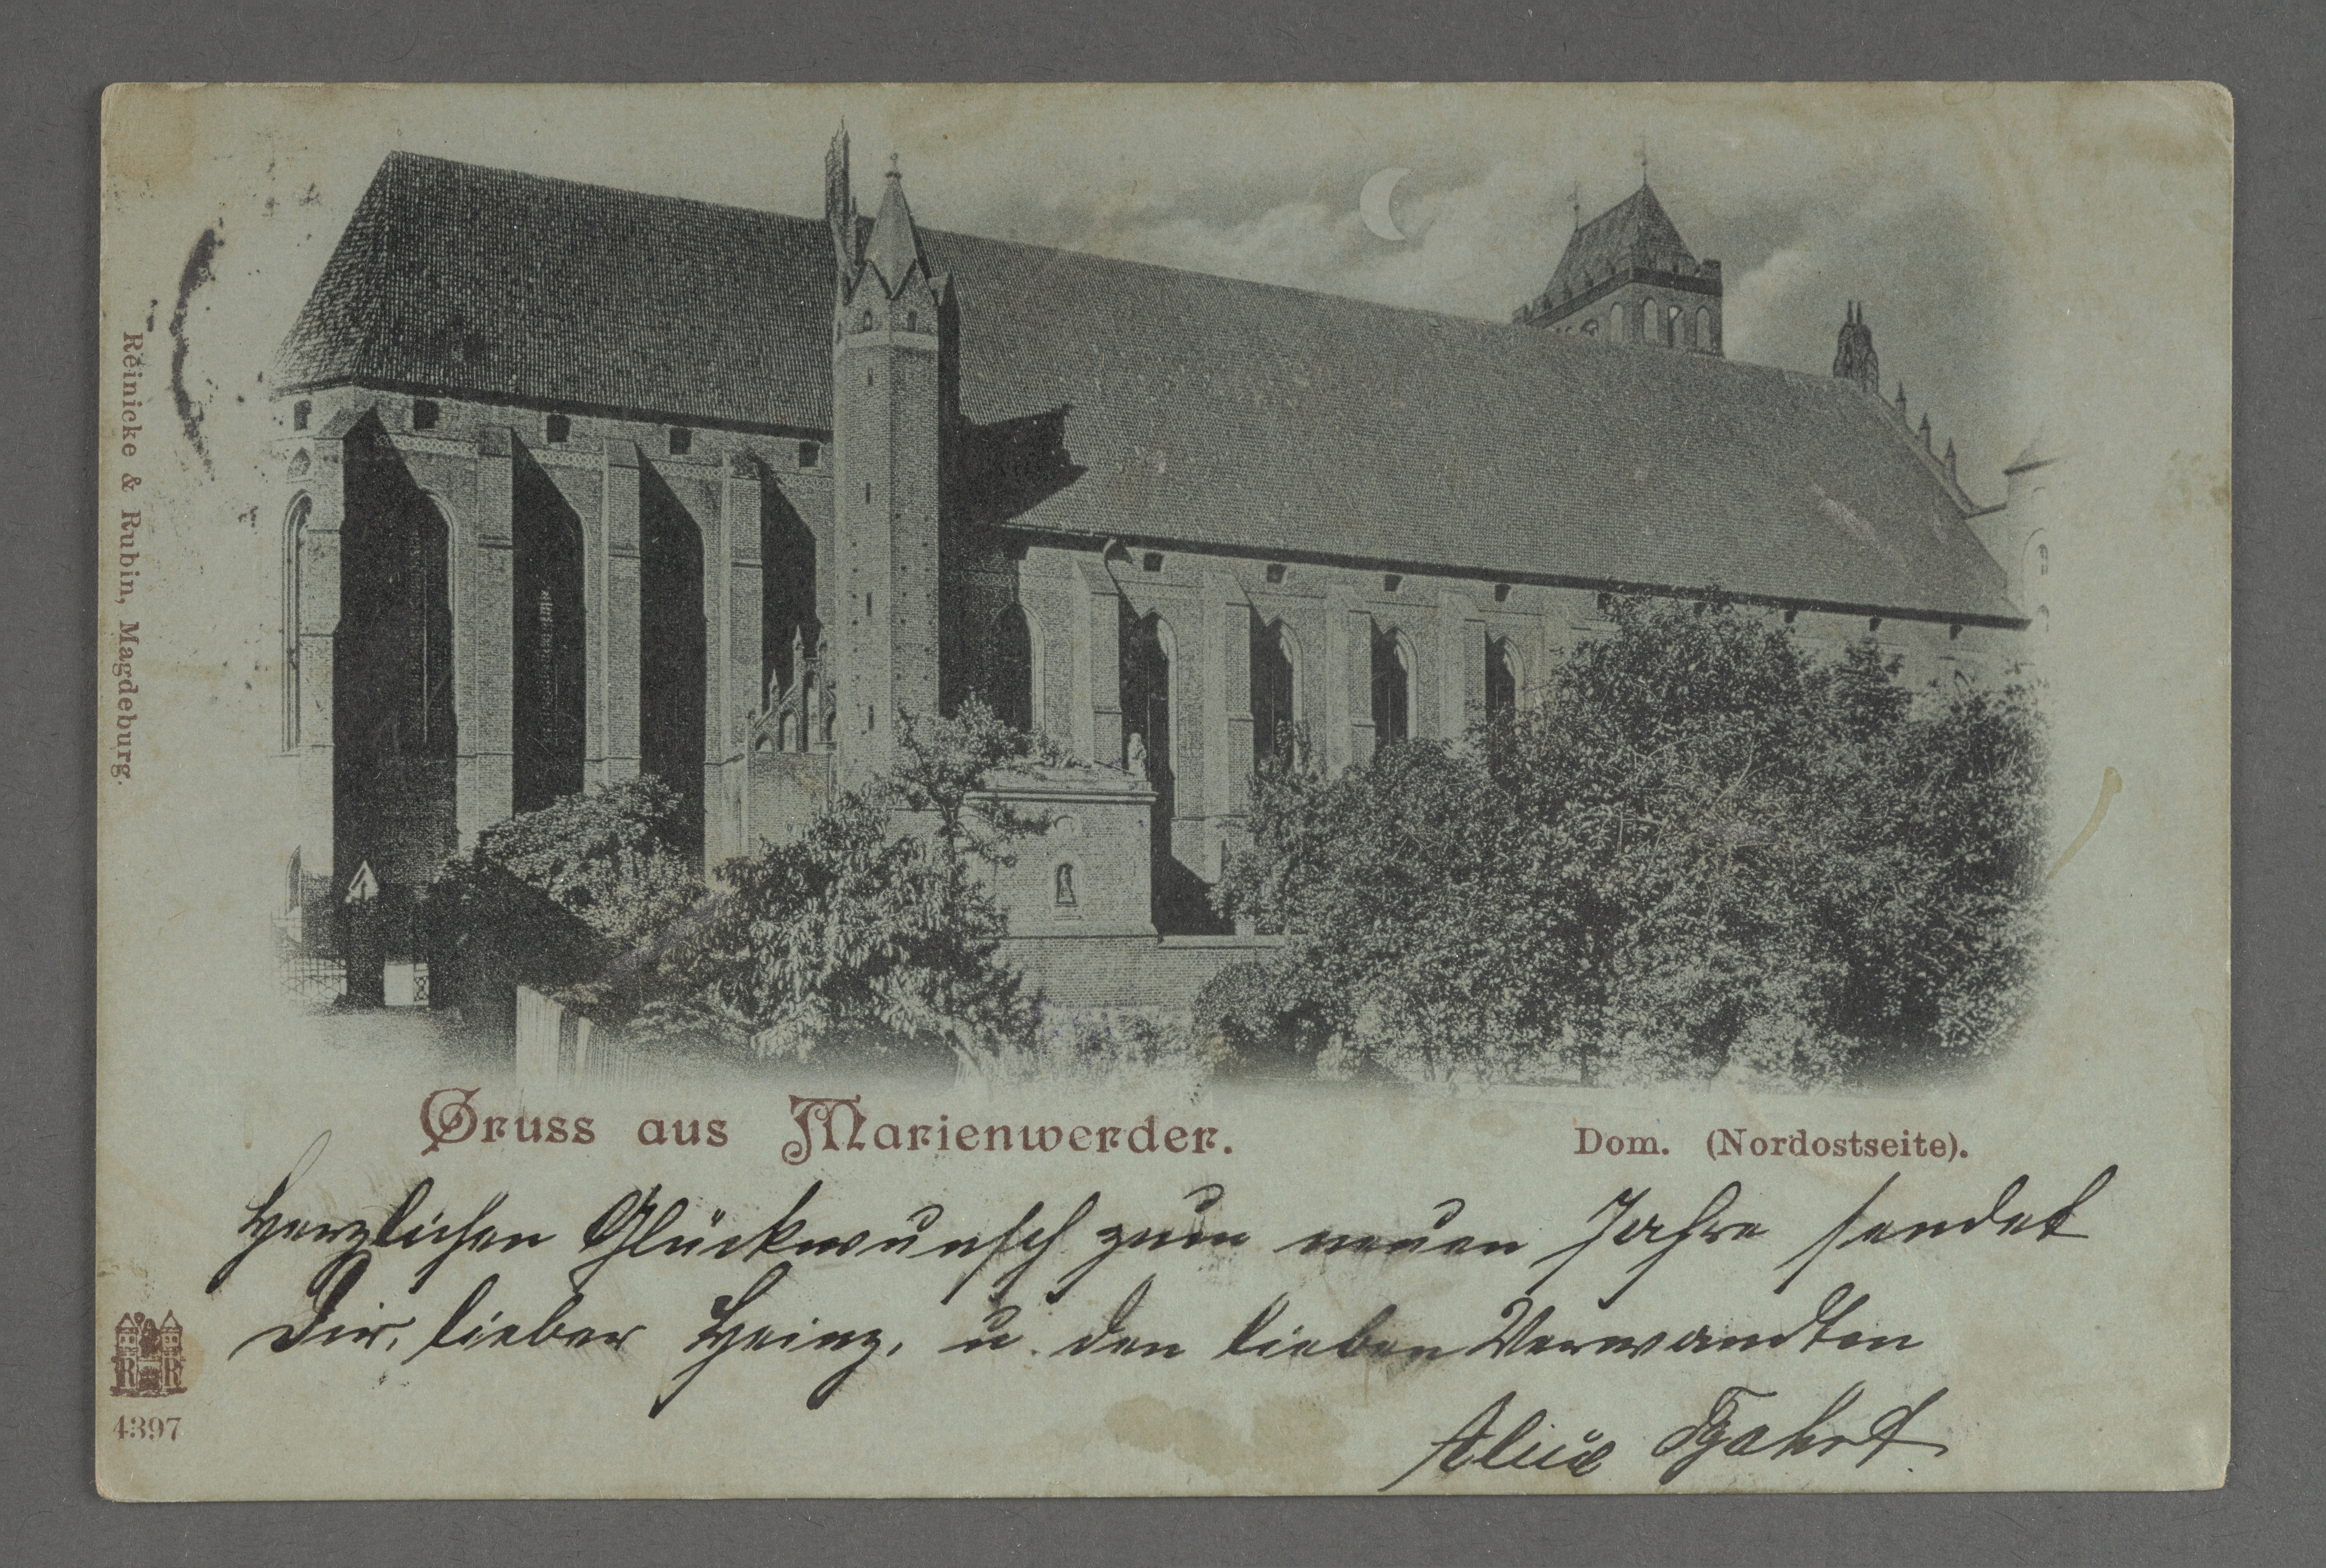 Reinicke & Rubin, Magdeburg.
Gruss aus Marienwerder.
Dom. (Nordostseite).
Herzlichen Glückwunsch zum neuen Jahre sendet
Dir, lieber Heinz, u. den lieben Verwandten
Alice
R R
4397